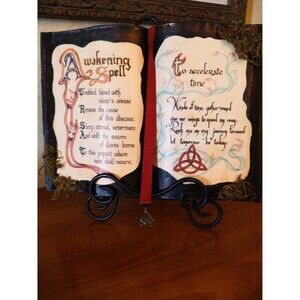 Awakening
Spell
Troubled blood with
sleep's unease
Remove the cause
of this disease.
Sleep eternal, nevermore
And with the source
of illness borne
To this poppet whom
none shall mourn.
To accelerate
time
Winds of time, gather round
give me wings to speed my way.
Rush me on my journey forward
let tomorrow be today.